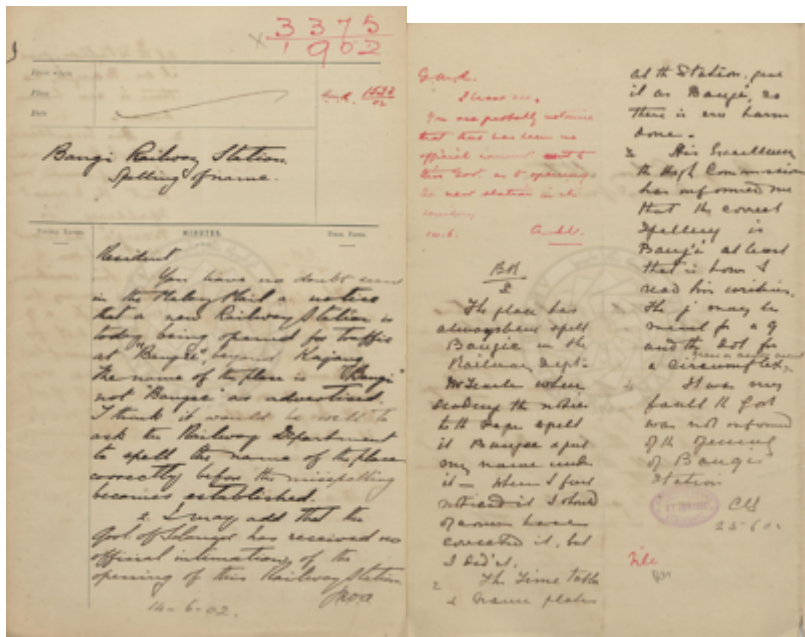 3375
1902
Bangi Railway Station
Spelling of name.
MINUTES.
Resident
You have no doubt seen
in the Malay Mail a notice
that a new Railway Station is
today being opened for traffic
at "Bangee", beyond Kajang
The name of the place is "Bangi"
not "Bangee" as advertised.
I think it would be well to
ask the Railway Department
to spell the name of the place
correctly before the misspelling
becomes established.
2. I may add that the
Govt of Selangor has received no
official intimation, of the
opening of this Railway Station
14-6-02.
You are probably not aware
that there has been no
official
this Govt. as to opening
new station in the
14.6.
The place has
always been spelt
Bangie in the
Railway Dept.
when
sending the notice
to the spelt
it Bangee & put
my name under
it — When I first
noticed it I should
of course have
corrected it, but
I didn't.
2 The Time Table
& name plates
at the Station, give
it as Bangi, so
there is no harm
done.
3 His Excellency
the High Commissioner
has informed me
that the correct
spelling is
Bangi at least
that is how I
read his writing.
The j may be
meant for a g
and the dot for
a circumflex
4 It was my
fault the Govt
was not informed
of the opening
of Bangi
Station
25-6-02
File